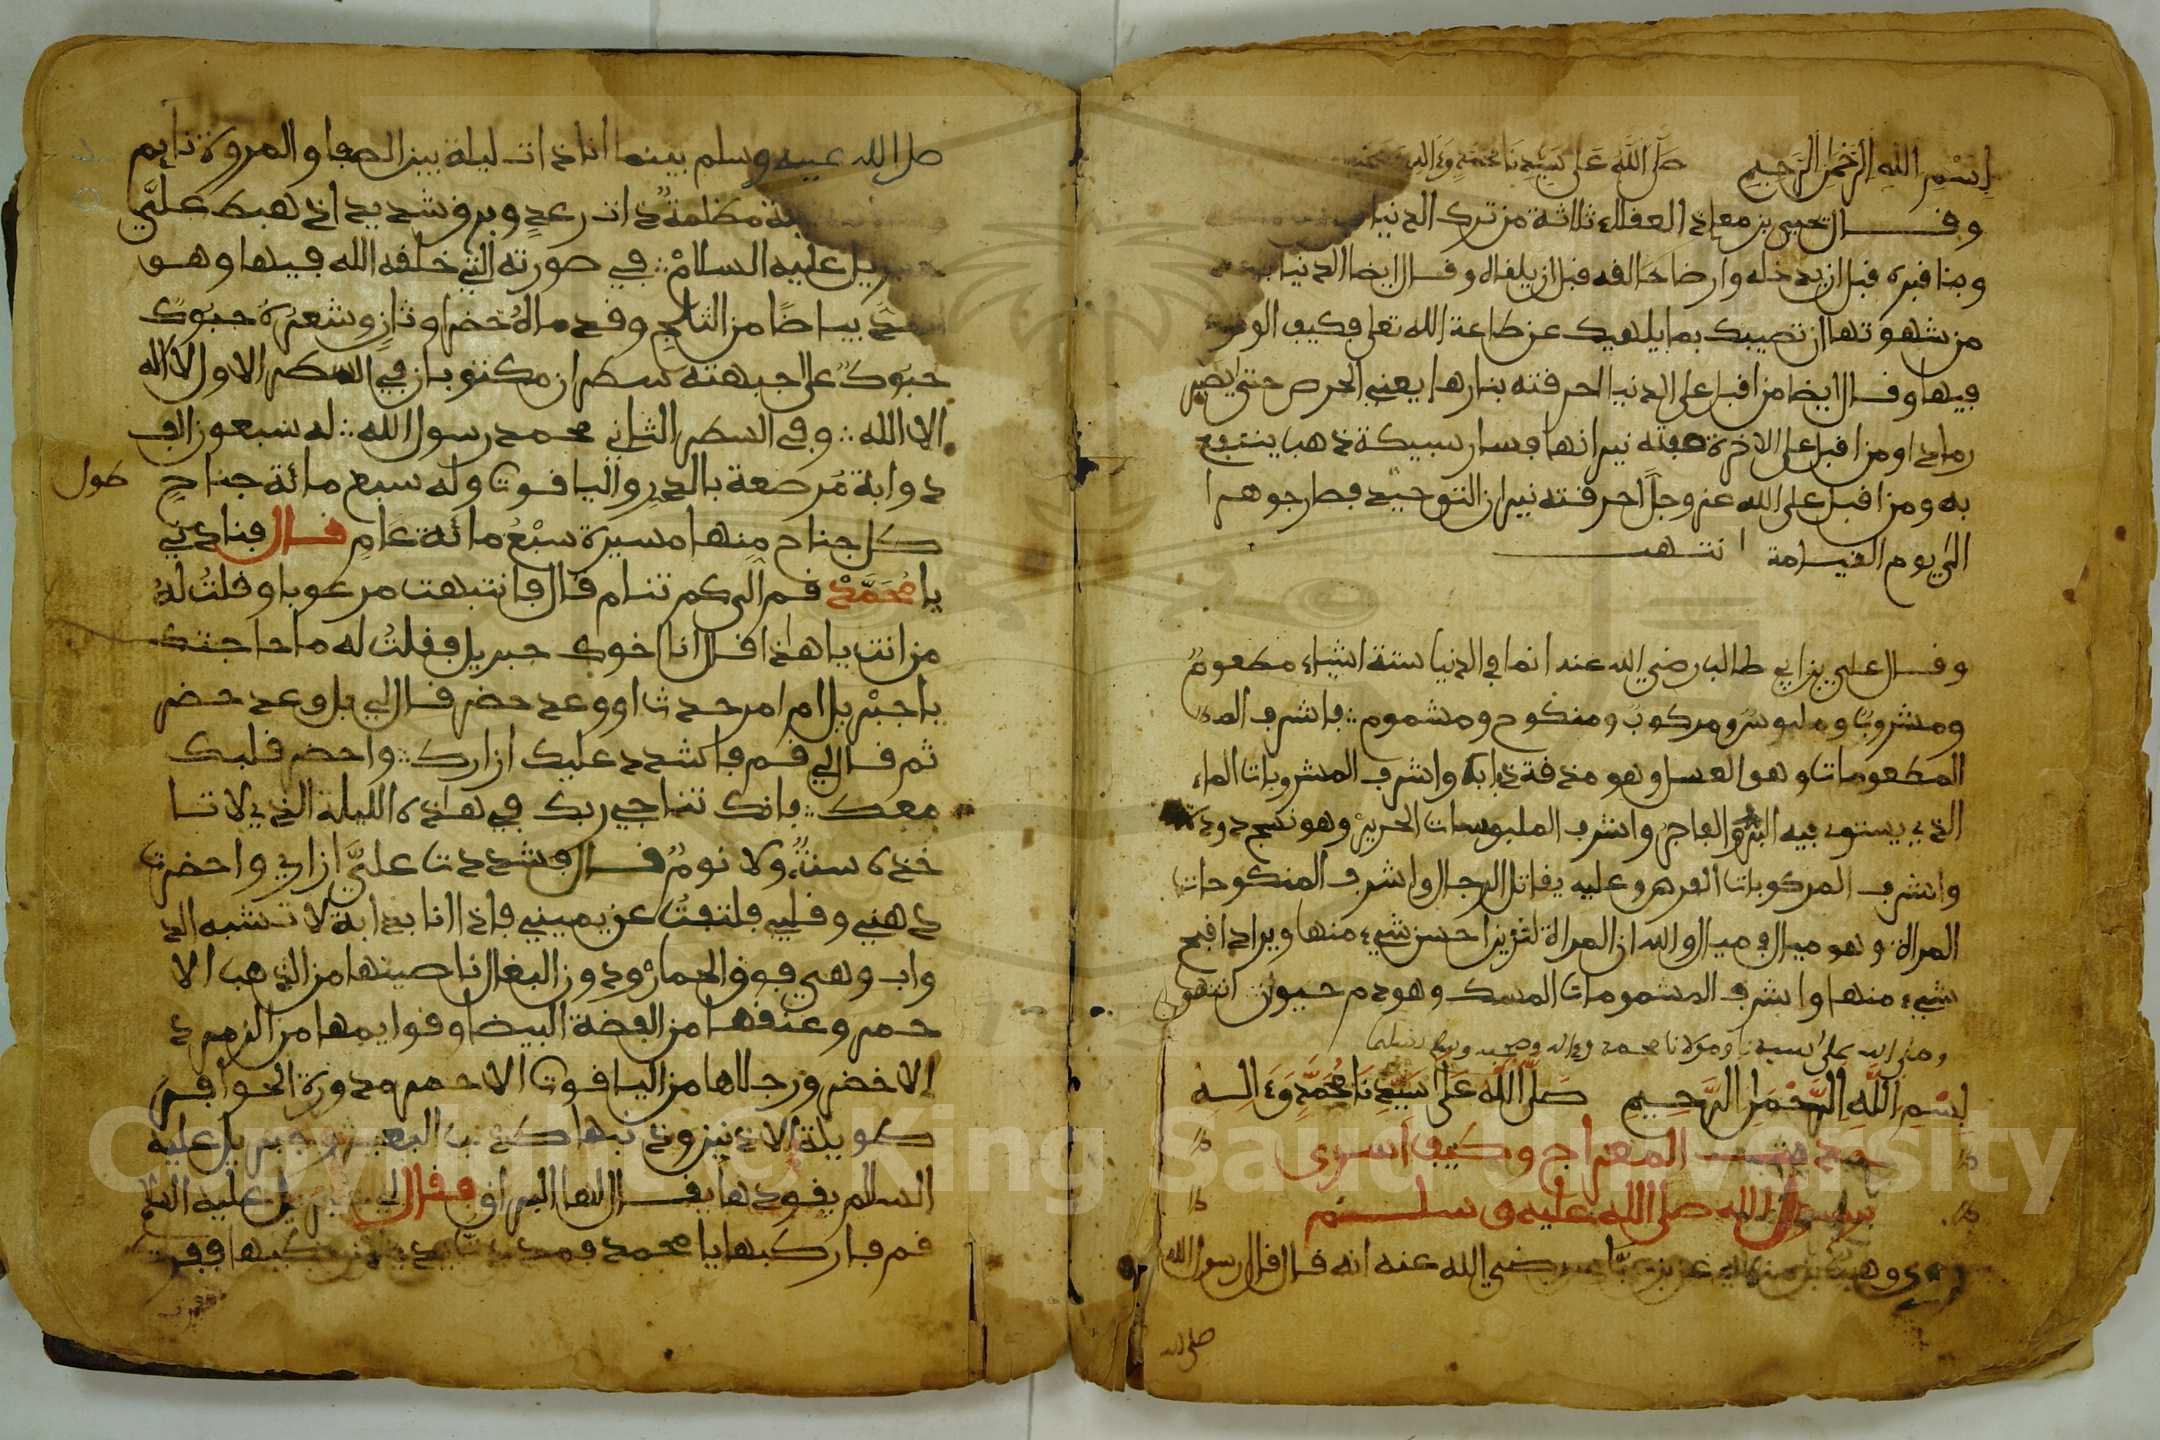 بسم الله الرحمن الرحيم صلى الله على سيدنا محمد وءاله
وقال يحيى بن معاذ العقلاء ثلاثة من ترك الدنيا
وبنا قبره قبل ان يدخله وارضا خالقه قبل ان يلقاه وقال ايضا الدنيا
من شهوتها ان تصيبك بما يلهيك عن طاعة الله تعلى فكيف
فيها وقال ايضا من اقبل على الدنيا احرقته بنارها يعني الحرص حتى يصير
رمادا ومن اقبل على الاخرة نيرانها فسار سبيكة ذهب ينتفع
به ومن اقبل على الله عز وجل احرقته نيران التوحيد فصار جوهرا
الى يوم القيامة انتهى
وقال علي بن ابي طالب رضي الله عنه انما في الدنيا ستة اشياء مطعوم
ومشروب وملبوس ومركوب ومنكوح ومشموم فاشرف
المطعومات وهو العسل وهو مذقة ذبابة واشرف المشروبات الماء
الذي يستوي فيه البر والفاجر واشرف الملبوسات الحرير وهو نسج دودة
واشرف المركوبات الفرس وعليه يقاتل الرجال واشرف المنكوحات
المراة وهو مبال في مبال والله ان المراة لتزين احسن شيء منها ويراد اقبح
شيء منها واشرف المشمومات المسك وهو دم حيوان انتهى
وصلى الله على سيدنا ومولانا محمد وءاله وصحبه وسلم تسليما
بسم الله الرحمن الرحيم صلى الله على سيدنا محمد وءاله
حديث المعراج وكيف اسرى
برسول الله صلى الله عليه وسلم
وهب بن منبه عن رضي الله عنه انه قال قال رسول الله
صلى الله
صلى الله عليه وسلم بينما انا ذات ليلة بين الصفا والمروة نايم
مظلمة ذات رعد وبرق شديد اذ هبط علي
جبريل عليه السلام في صورته التي خلقه الله فيها وهو
بياضا من الثلج وشعره حبوك
حبوك على جبهته سطران مكتوبان في السطر الاول لا اله
الا الله وفي السطر الثاني محمد رسول الله له سبعون الف
دوابة مرصعة بالدر والياقوت وله سبع مائة جناح
طول
كل جناح منها مسيرة سبع مائة عام قال فنادني
يا محمد قم الى كم تنام قال فانتبهت مرعوبا وقلت له
من انت يا هاذا قال انا اخوك جبريل فقلت له ما حاجتك
يا جبريل ام امر حدث او وعد حضر قال لي بل وعد حضر
ثم قال لي قم فاشدد عليك ازارك واحضر قلبك
معك فانك تناجي ربك في هاذه الليلة الذي لا تا
خذه سنة ولا نوم قال فشددت علي ازاري واحضرت
ذهني وقلبي فلتفت عن يميني فاذا انا بدابة لا تشبه الد
واب وهي فوق الحمار ودون البغال ناصيتها من الذهب الا
حمر وعنقها من الفضة البيضا وقوايمها من الزمرد
الاخضر ورجلاها من الياقوت الاحمر مدورة الحوافر
طويلة الاذنين وذنبها كذنب البعير وجبريل عليه
السلام يقودها يقال لها البراق فقال لي جبريل عليه السلام
قم فاركبها يا محمد فمددت يدي